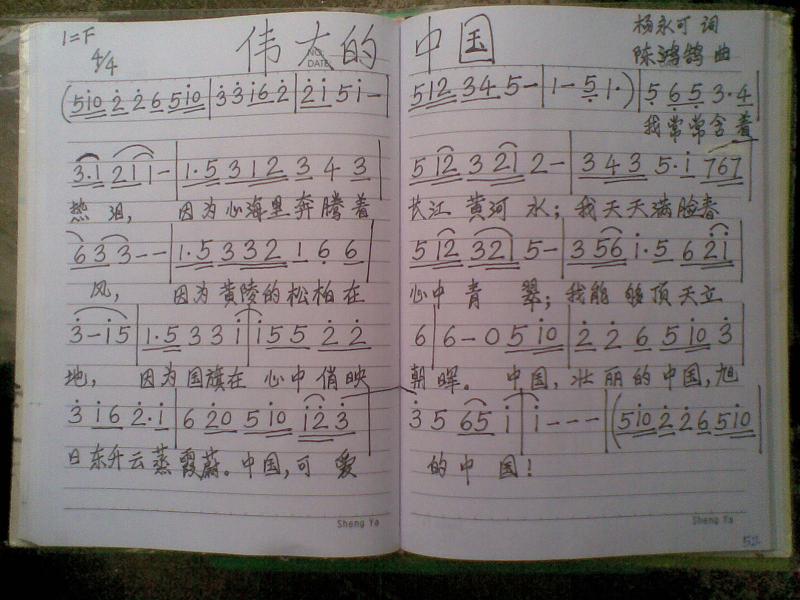 1=F 4/4 伟大的中国 杨永可 词
NO. DATE. 陈鸿鸽 曲
(5i0 2 2 6 5i0 | 3 3 i 6 2 | 2 i 5 i - | 5 1 2 3 4 5 - | 1 - 5 1· ) | 5 6 5 3· 4 |
我常常含着
3·1 2 1 1 - | 1·5 3 1 2 3 4 3 | 5 i2 3 2i 2 - | 3 4 3 5·i 7 6 7 |
热泪, 因为心海里奔腾着 长江黄河水; 我天天满脸春
6 3 3 - - | 1·5 3 3 2 1 6 6 | 5 i2 3 2i 5 - | 3 5 6 i·5 6 2i |
风, 因为黄陵的松柏在 心中青翠; 我能够顶天立
3 - i 5 | 1·5 3 3 i | i 5 5 2 2 6 | 6 - 0 5 i0 | 2 2 6 5 i0 3 |
地, 因为国旗在心中俏映朝晖。 中国, 壮丽的中国, 旭
3 i 6 2·i | 6 2 0 5 i0 i 2 3 | 3 5 6 5 i | i - - - | (5i0 2 2 6 5i0
日东升云蒸霞蔚。中国, 可爱的中国!
Sheng Ya Sheng Ya
52